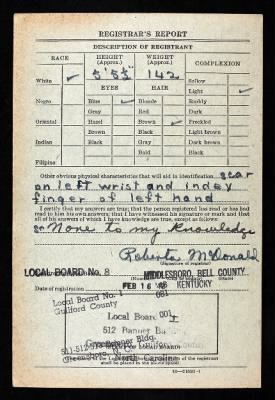 REGISTRAR'S REPORT
DESCRIPTION OF REGISTRANT
RACE HEIGHT (Approx.) WEIGHT (Approx.) COMPLEXION
5' 5½" 142
White ✓ EYES HAIR Sallow
Light ✓
Negro Blue ✓ Blonde Ruddy
Gray Red Dark
Oriental Hazel Brown ✓ Freckled
Brown Black Light brown
Indian Black Gray Dark brown
Bald Black
Filipino
Other obvious physical characteristics that will aid in identification scar
on left wrist and index
finger of left hand
I certify that my answers are true; that the person registered has read or has had
read to him his own answers; that I have witnessed his signature or mark and that
all of his answers of which I have knowledge are true, except as follows:
None to my knowledge
Roberta McDonald
LOCAL BOARD No. 8 MIDDLESBORO, BELL COUNTY
Date of registration FEB 16 KENTUCKY
Local Board No. 1
Guilford County
Local Board
512
Greensboro, North Carolina